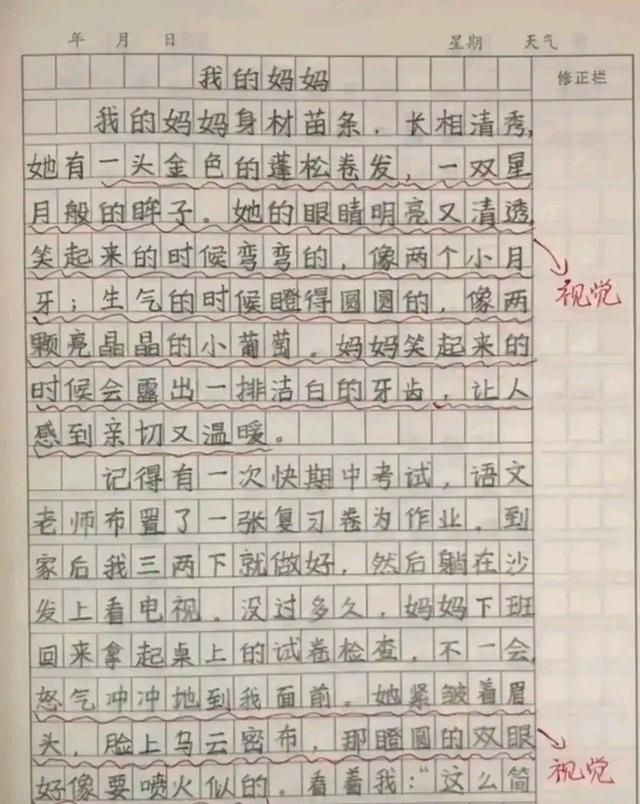 年 月 日 星期 天气
我的妈妈 修正栏
我的妈妈身材苗条，长相清秀，
她有一头金色的蓬松卷发，一双星
月般的眸子。她的眼睛明亮又清透，
笑起来的时候弯弯的，像两个小月
牙；生气的时候瞪得圆圆的，像两
视觉
颗亮晶晶的小葡萄。妈妈笑起来的
时候会露出一排洁白的牙齿，让人
感到亲切又温暖。
记得有一次快期中考试，语文
老师布置了一张复习卷为作业。到
家后我三两下就做好，然后躺在沙
发上看电视。没过多久，妈妈下班
回来拿起桌上的试卷检查，不一会，
怒气冲冲地到我面前。她紧皱着眉
头，脸上乌云密布，那瞪圆的双眼
好像要喷火似的。看着我：“这么简
视觉